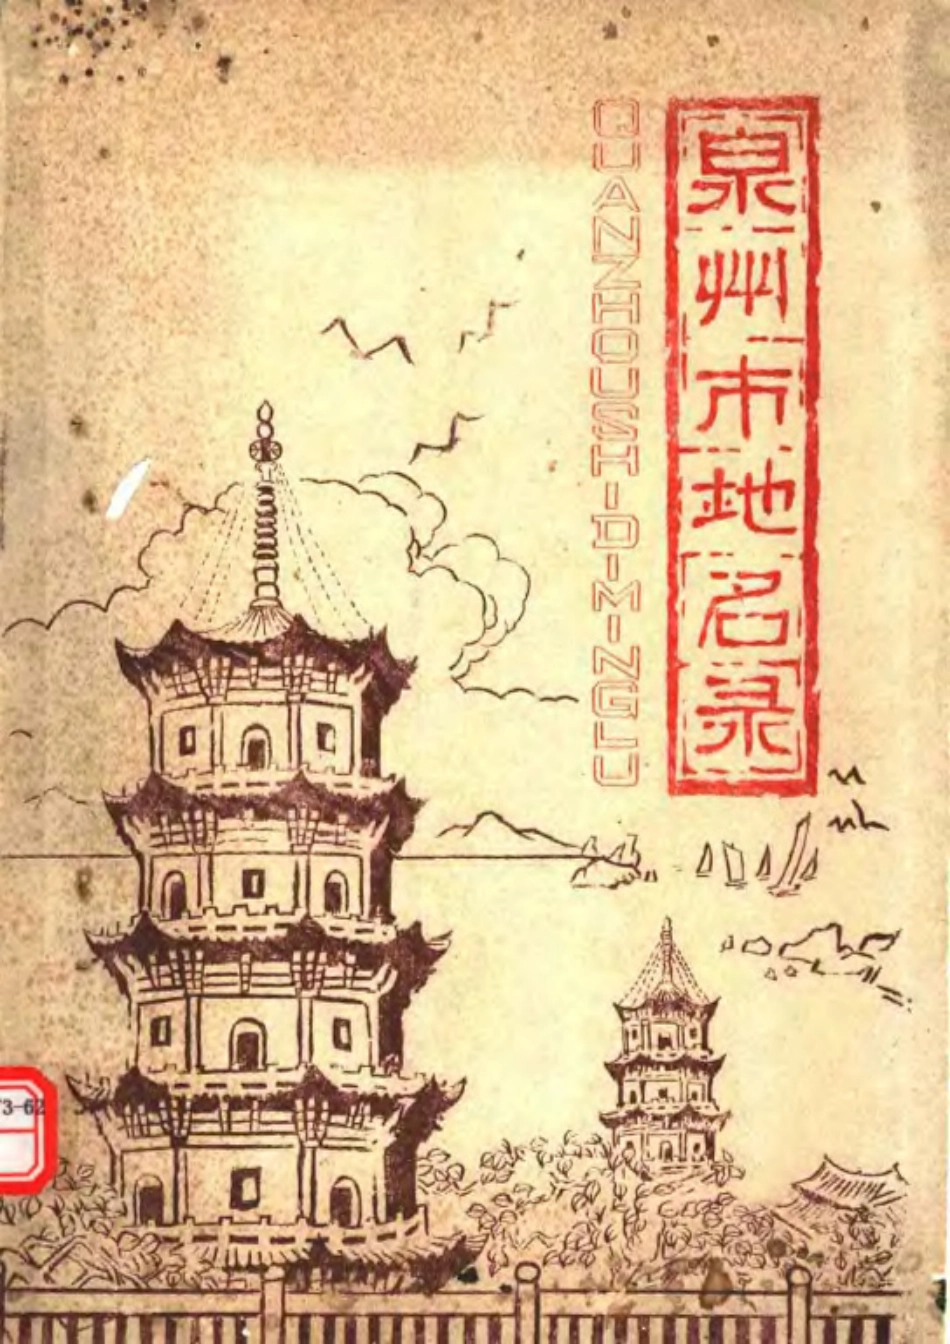 泉州市地名录
QUANZHOUSHIDIMINGLU
73-62